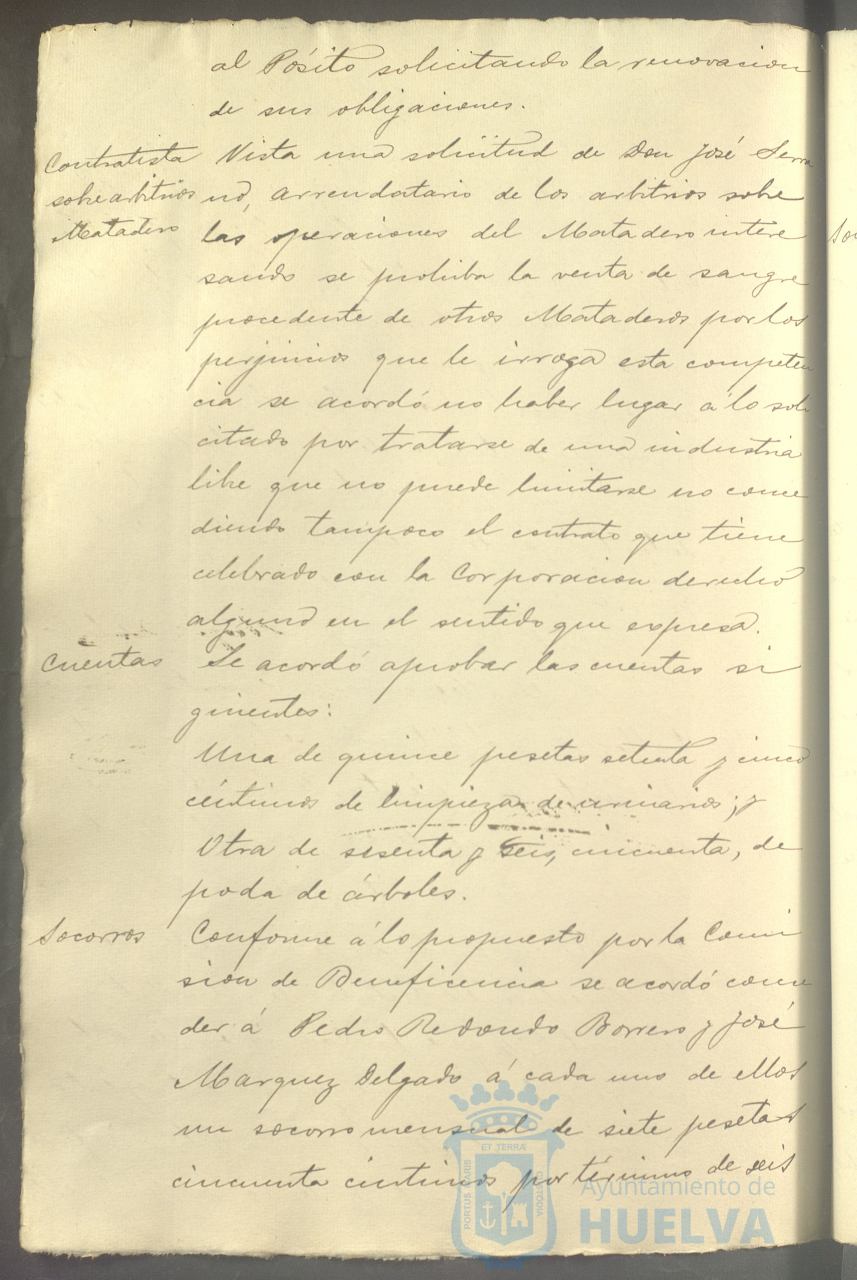 al Pósito solicitando la renovacion
de sus obligaciones.
Contratista
sobre arbitrios
Matadero
Vista una solicitud de Don José Serra
no, arrendatario de los arbitrios sobre
las operaciones del Matadero intere
sando se prohiba la venta de sangre
procedente de otros Mataderos por los
perjuicios que le irroga esta competen
cia se acordó no haber lugar á lo soli
citado por tratarse de una industria
libre que no puede limitarse no conce
diendo tampoco el contrato que tiene
celebrado con la Corporacion derecho
alguno en el sentido que expresa.
Cuentas
Se acordó aprobar las cuentas si
guientes:
Una de quince pesetas setenta y cinco
céntimos de limpieza de urinarios; y
Otra de sesenta y seis, cincuenta, de
poda de árboles.
Socorros
Conforme á lo propuesto por la Comi
sion de Beneficencia se acordó conce
der á Pedro Redondo Borrero y José
Marquez Delgado á cada uno de ellos
un socorro mensual de siete pesetas
cincuenta centimos por término de seis
ET TERRÆ
PORTUS MARIS
CUSTODIA
Ayuntamiento de
HUELVA